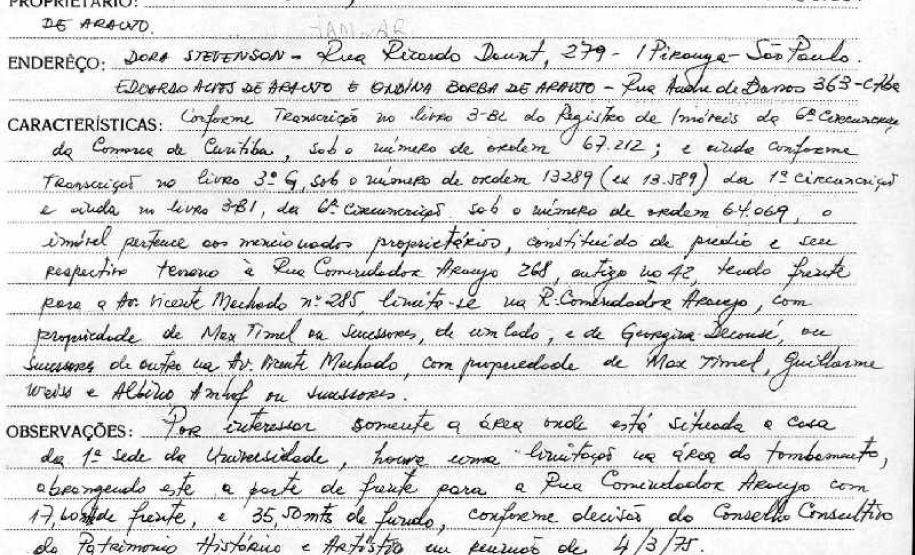 PROPRIETÁRIO:
DE ARAUJO.
ENDERÊÇO: DORA STEVENSON - Rua Ricardo Daunt, 279 - IPiranga - São Paulo.
EDUARDO ALVES DE ARAUJO E ONDINA BORBA DE ARAUJO - Rua de Barros 363-
CARACTERÍSTICAS: Conforme Transcrição no livro 3-BL do Registro de Imóveis da 6ª Circunscrição
da Comarca de Curitiba, sob o número de ordem 67.212; e ainda conforme
Transcrição no livro 3º G, sob o número de ordem 13289 (ex 13.589) da 1ª circunscrição
e ainda no livro 3-BI, da 6ª Circunscrição sob o número de ordem 64.069, o
imóvel pertence aos mencionados proprietários, constituído de predio e seu
respectivo terreno à Rua Comendador Araujo 268, antigo no 42, tendo frente
para a Av. Vicente Machado nº 285, limita-se na R. Comendador Araujo, com
propriedade de Max Timel ou sucessores, de um lado, e de Georgina, ou
sucessores de outro na Av. Vicente Machado, com propriedade de Max Timel, Guilherme
Weiss e Albino ou sucessores.
OBSERVAÇÕES: Por interessar somente a área onde está situada a casa
da 1ª sede da Universidade, houve uma limitação na área do tombamento,
abrangendo este a parte de frente para a Rua Comendador Araujo com
17,60mts de frente, e 35,50mts de fundo, conforme decisão do Conselho Consultivo
do Patrimonio Histórico e Artístico em reunião de 4/3/75.